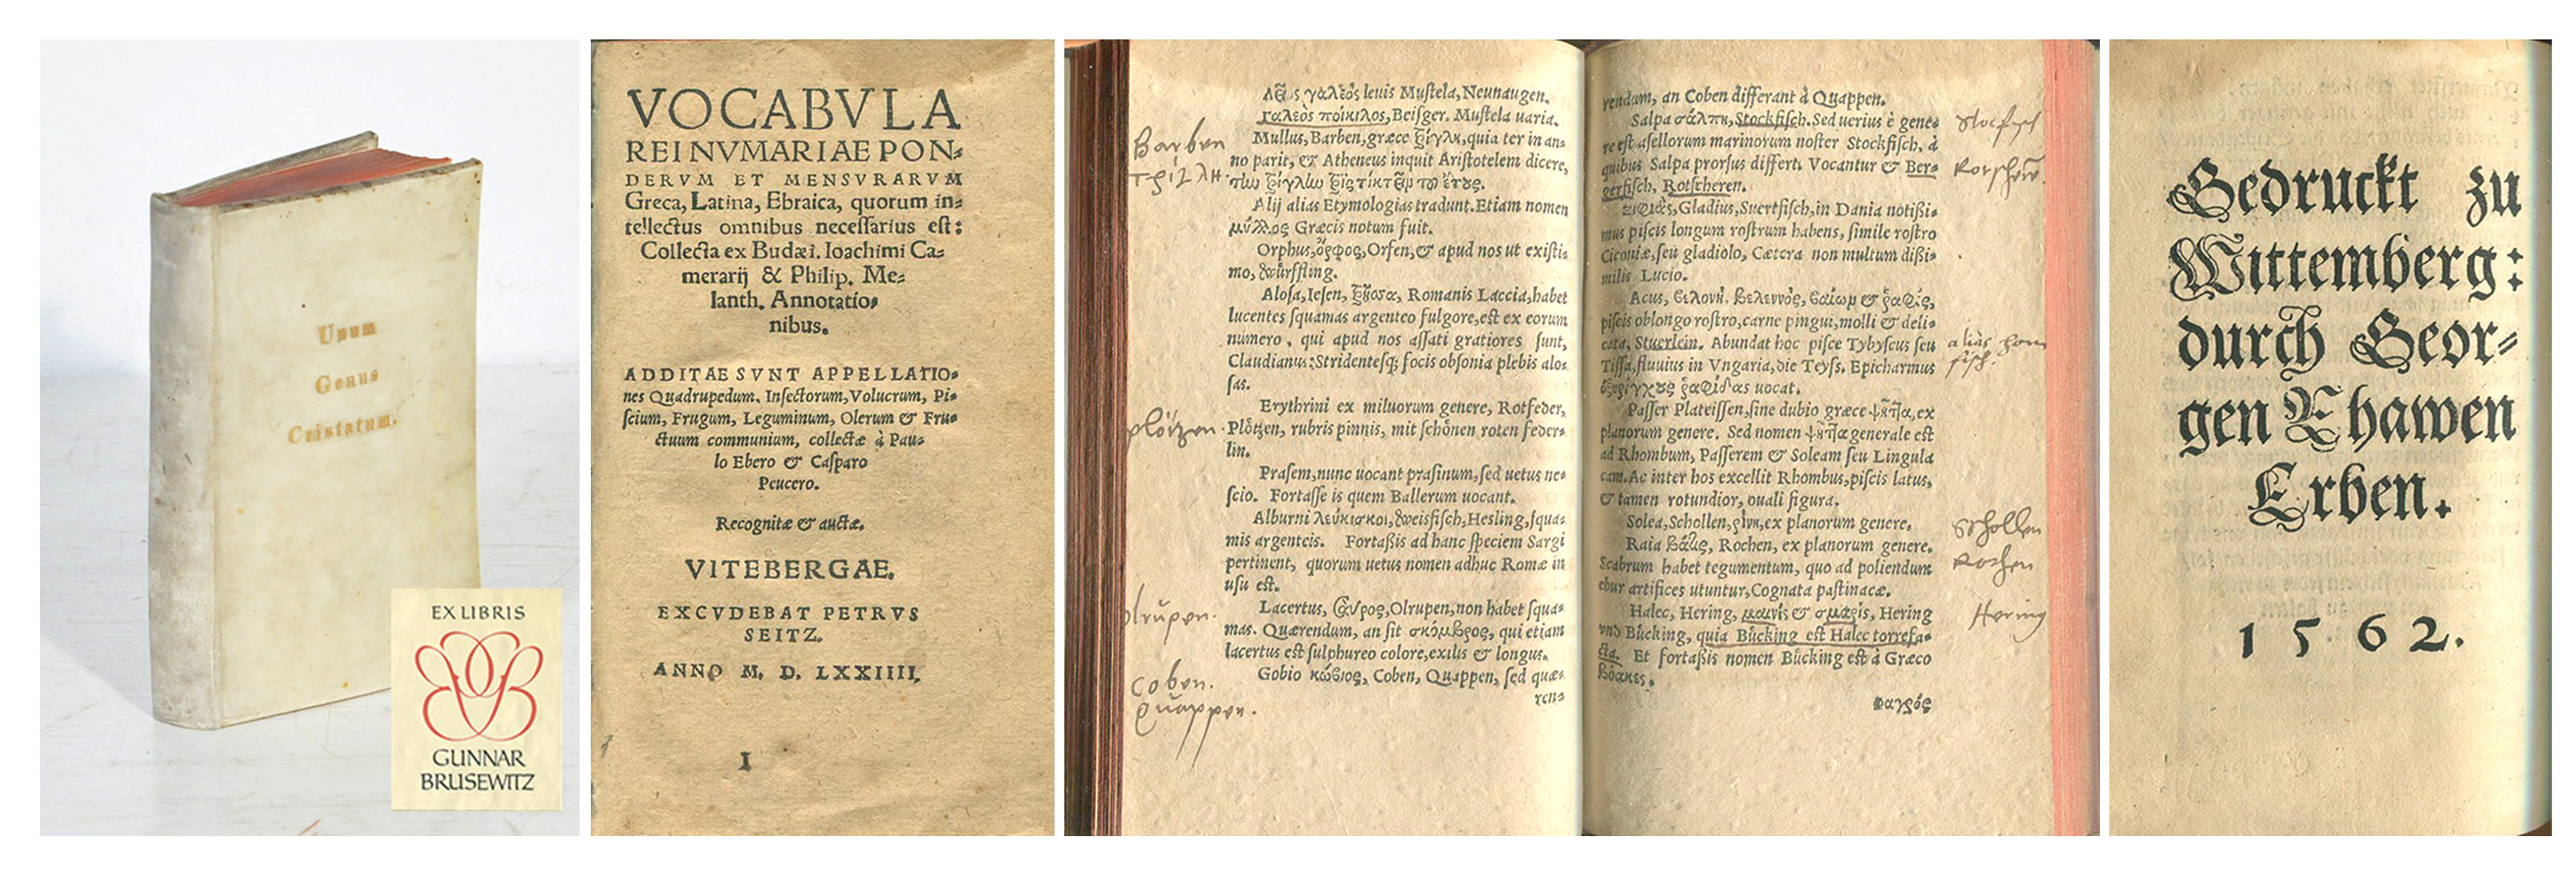 Upum
Genus
Cristatum.
EX LIBRIS
GUNNAR
BRUSEWITZ
VOCABVLA
REI NVMARIAE PON⸗
DERVM ET MENSVRARVM
Greca, Latina, Ebraica, quorum in⸗
tellectus omnibus necessarius est:
Collecta ex Budæi. Ioachimi Ca⸗
merarij & Philip. Me⸗
lanth. Annotatio⸗
nibus.
ADDITAE SVNT APPELLATIO⸗
nes Quadrupedum, Insectorum, Volucrum, Pi⸗
scium, Frugum, Leguminum, Olerum & Fru⸗
ctuum communium, collectæ à Pau⸗
lo Ebero & Casparo
Peucero.
Recognitæ & auctæ.
VITEBERGAE.
EXCVDEBAT PETRVS
SEITZ.
ANNO M. D. LXXIIII.
1
γαλεὸς leuis Mustela, Neunaugen.
Γαλεὸς ποίκιλος, Beisger. Mustela uaria.
Mullus, Barben, græce τρίγλη, quia ter in an⸗
no parit, & Atheneus inquit Aristotelem dicere,
Alij alias Etymologias tradunt. Etiam nomen
μύλλος Græcis notum fuit.
Orphus, ὄρφος, Orfen, & apud nos ut existi⸗
mo, Würffling.
Alosa, Iesen, Romanis Laccia, habet
lucentes squamas argenteo fulgore, est ex eorum
numero, qui apud nos assati gratiores sunt,
Claudianus: Stridentesq; focis obsonia plebis alo⸗
sas.
Erythrini ex miluorum genere, Rotfeder,
Plötzen, rubris pinnis, mit schönen roten feder⸗
lin.
Prasem, nunc uocant prasinum, sed uetus ne⸗
scio. Fortasse is quem Ballerum uocant.
Alburni λεύκισκοι, Weisfisch, Hesling, squa⸗
mis argenteis. Fortaßis ad hanc speciem Sargi
pertinent, quorum uetus nomen adhuc Romæ in
usu est.
Lacertus, Olrupen, non habet squa⸗
mas. Quærendum, an sit σκόμβρος, qui etiam
lacertus est sulphureo colore, exilis & longus.
Gobio κώβιος, Coben, Quappen, sed quæ⸗
ren⸗
Barben
τρίγλη
plötzen
olrupen.
Coben.
Quappen.
rendum, an Coben differant à Quappen.
Salpa σάλπη, Stockfisch. Sed uerius è gene⸗
re est asellorum marinorum noster Stockfisch, à
quibus Salpa prorsus differt. Vocantur & Ber⸗
gerfisch, Rotscheren.
Ξιφίας, Gladius, Suertfisch, in Dania notißi⸗
mus piscis longum rostrum habens, simile rostro
Ciconiæ, seu gladiolo, Cætera non multum dißi⸗
milis Lucio.
Acus, βελονὴ, βελεννὸς, & ῥαφίς,
piscis oblongo rostro, carne pingui, molli & deli⸗
cata, Stuerlein. Abundat hoc pisce Tybyscus seu
Tissa, fluuius in Vngaria, die Teyss. Epicharmus
ῥαφίδας uocat.
Passer Plateissen, sine dubio græce ψῆττα, ex
planorum genere. Sed nomen ψῆττα generale est
ad Rhombum, Passerem & Soleam seu Lingula
cam. Ac inter hos excellit Rhombus, piscis latus,
& tamen rotundior, ouali figura.
Solea, Schollen, ex planorum genere.
Raia Rochen, ex planorum genere.
Scabrum habet tegumentum, quo ad poliendum
ebur artifices utuntur, Cognata pastinacæ.
Halec, Hering, μαινὶς & σμαρὶς, Hering
vnd Bücking, quia Bücking est Halec torrefa⸗
cta. Et fortaßis nomen Bücking est à Græco
βόακες.
φαγρός
alias
fisch.
Schollen
Rochen
Hering
Gedruckt zu
Wittemberg:
durch Geor⸗
gen Rhawen
Erben.
1562.